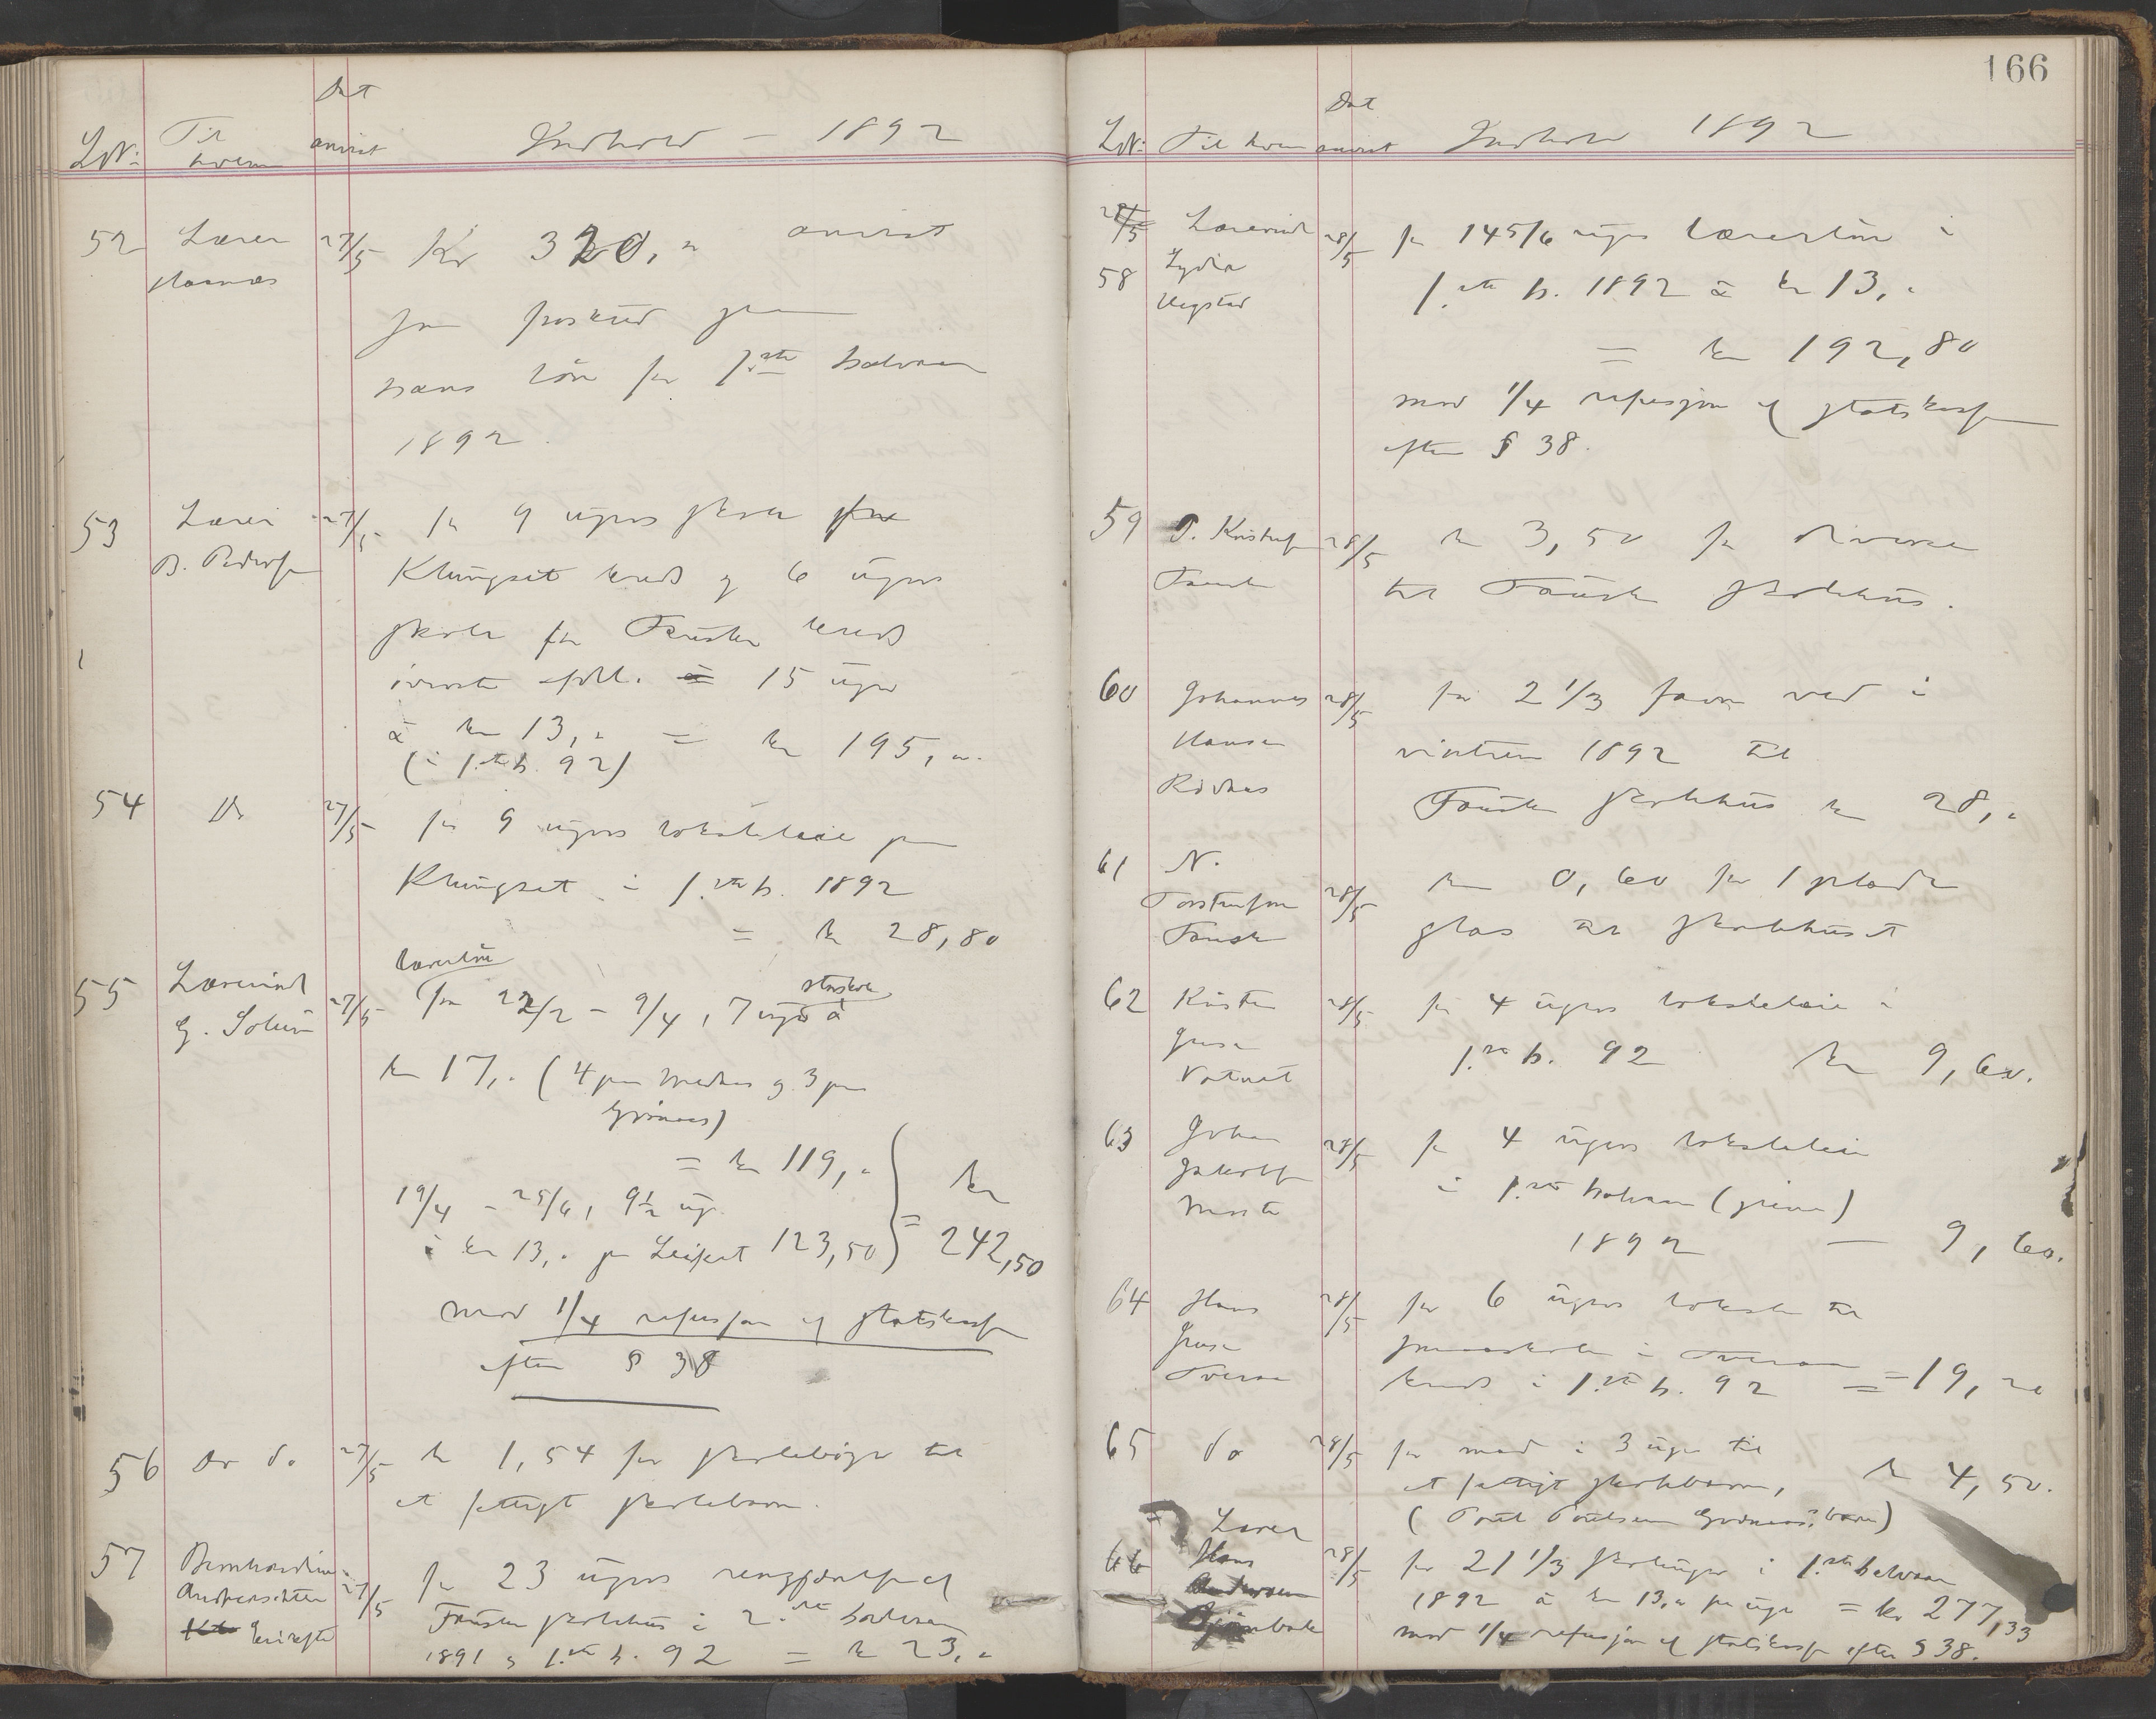 LN: Til hvem Dat anvist Indhold – 1892
52 Lærer Hasnæs 27/5 Kr 320,„ anvist
som forskud paa
hans løn for 1.ste halvaar
1892.
53 Lærer B. Pedersen 27/5 for 9 ugers skole
Klungset kreds og 6 ugers
skole for Fauske kreds
øverste afdl. = 15 uger
à kr 13,„ = kr 195,„.
(i 1.ste h. 92)
54 Do 27/5 for 9 ugers lokaleleie paa
Klungset i 1.ste h. 1892
= kr 28,80
lærerløn
55 Lærerinde G. Solum 27/5 fra 22/2 – 9/4, 7 uger à
storskole
kr 17,„ (4 paa Medhus og 3 paa
Grønaas)
= kr 119,„
19/4 – 25/6, 9½ ug.
à kr 13,„ paa Leifset 123,50 } = kr 242,50
mod 1/4 refusjon af statskassen
efter § 38
56 Do do 27/5 kr 1,54 for skolebøger til
et fattigt skolebarn.
57 Bernhardine Andreasdatter 27/5 for 23 ugers rengjørelse af
Fauske skolehus i 2.det halvaar
1891 og 1.ste h. 92 = kr 23,„
166
LN: Til hvem Dat anvist Indhold 1892
58 Lærerinde Lydia Vegstad 28/5 for 14 5/6 uges lærerløn i
1.ste h. 1892 à kr 13,„
= kr 192,80
mod 1/4 refusjon af statskassen
efter § 38.
59 P. Kristensen Fauske 28/5 kr 3,50 for diverse
til Fauske skolehus.
60 Johannes Hansen Rødaas 28/5 for 2 1/3 favn ved i
vinteren 1892 til
Fauske skolehus kr 28,„
61 N. Torstensen Fauske 28/5 kr 0,60 for 1 plade
glas til skolehuset
62 Kristen Jensen Vatnet 28/5 for 4 ugers lokaleleie i
1.ste h. 92 kr 9,60.
63 Johan Jakobsen 28/5 for 4 ugers lokaleleie
i 1.ste halvaar
1892 — 9,60.
64 Hans Jensen Tveraa 28/5 for 6 ugers lokale til
smaaskole i Tveraa
kreds i 1.ste h. 92 = 19,20
65 do 28/5 for mad i 3 uger til
et fattigt skolebarn, kr 4,50.
(Poul Poulsen Godnes's barn)
66 Lærer Hans Bjørnbak 28/5 for 21 1/3 skoleuger i 1.ste halvaar
1892 à kr 13,„ pr uge = kr 277,33
mod 1/4 refusjon af statskassen efter § 38.